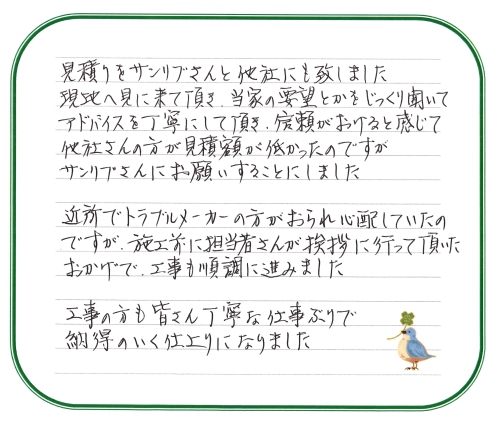 見積りをサンリブさんと他社にも致しました
現地へ見に来て頂き、当家の要望とかをじっくり聞いて
アドバイスを丁寧にして頂き、信頼がおけると感じて
他社さんの方が見積額が低かったのですが
サンリブさんにお願いすることにしました
近所でトラブルメーカーの方がおられ心配していたの
ですが、施工前に担当者さんが挨拶に行って頂いた
おかげで、工事も順調に進みました
工事の方も皆さん丁寧な仕事ぶりで
納得のいく仕上りになりました